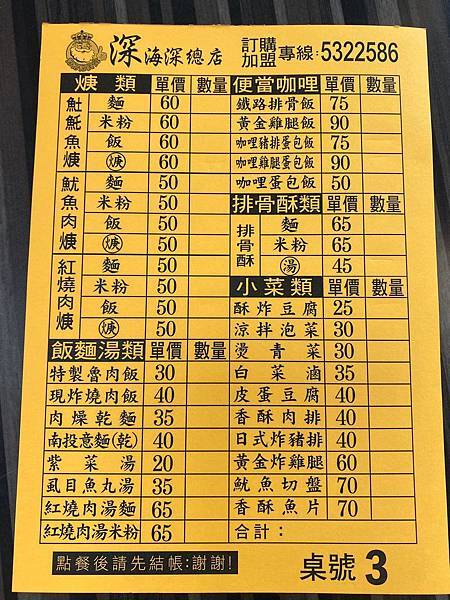 深海深總店 訂購加盟專線:5322586
焿類 單價 數量
魠魠魚焿
麵 60
米粉 60
飯 60
焿 60
魷魚肉焿
麵 50
米粉 50
飯 50
焿 50
紅燒肉焿
麵 50
米粉 50
飯 50
焿 50
飯麵湯類 單價 數量
特製魯肉飯 30
現炸燒肉飯 40
肉燥乾麵 35
南投意麵(乾) 40
紫菜湯 20
虱目魚丸湯 35
紅燒肉湯麵 65
紅燒肉湯米粉 65
點餐後請先結帳:謝謝!
便當咖哩 單價 數量
鐵路排骨飯 75
黃金雞腿飯 90
咖哩豬排蛋包飯 75
咖哩雞腿蛋包飯 90
咖哩蛋包飯 50
排骨酥類 單價 數量
排骨酥
麵 65
米粉 65
湯 45
小菜類 單價 數量
酥炸豆腐 25
涼拌泡菜 30
燙青菜 30
白菜滷 35
皮蛋豆腐 40
香酥肉排 40
日式炸豬排 40
黃金炸雞腿 60
魷魚切盤 70
香酥魚片 70
合計:
桌號 3